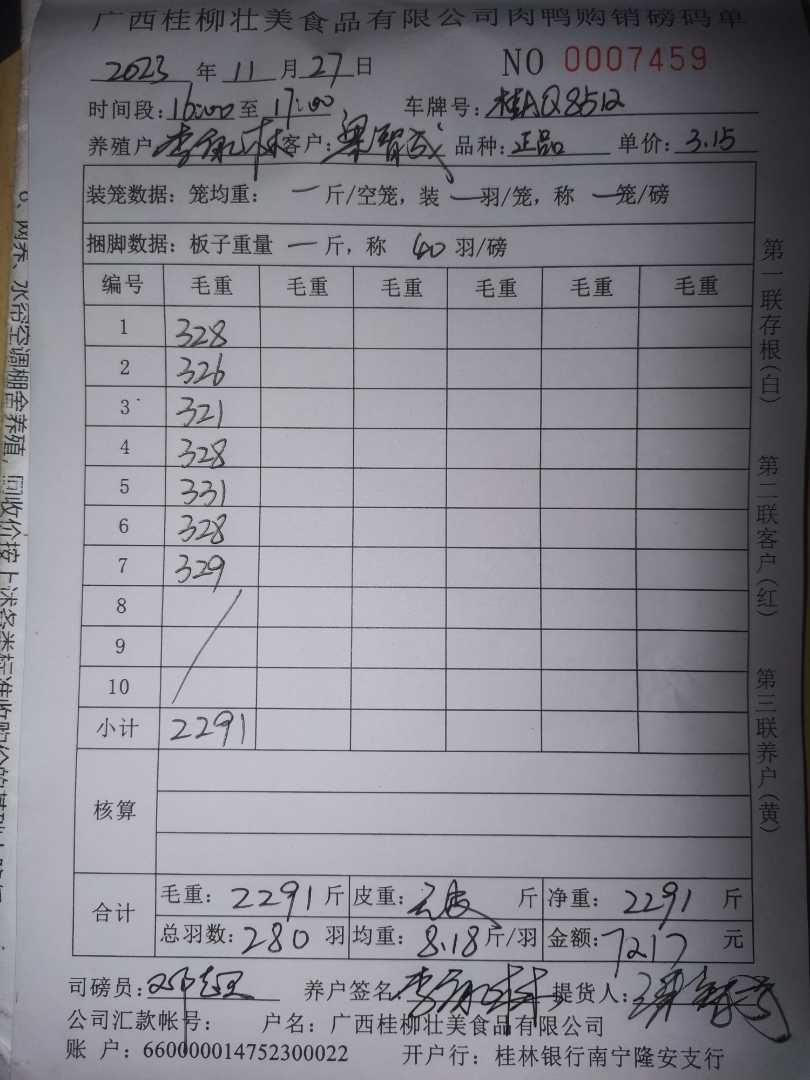 广西桂柳壮美食品有限公司肉鸭购销磅码单
2023年11月27日 NO 0007459
时间段:16:00至17:00 车牌号:桂AQ8512
养殖户: 客户:梁 品种:正品 单价:3.15
装笼数据:笼均重:一斤/空笼,装一羽/笼,称一笼/磅
捆脚数据:板子重量一斤,称40羽/磅
编号 毛重 毛重 毛重 毛重 毛重 毛重
1 328
2 326
3 321
4 328
5 331
6 328
7 329
8
9
10
小计 2291
核算
合计 毛重:2291斤 皮重:斤 净重:2291斤
总羽数:280羽 均重:8.18斤/羽 金额:7217元
司磅员: 养户签名: 提货人:
公司汇款帐号: 户名:广西桂柳壮美食品有限公司
账 户:660000014752300022 开户行:桂林银行南宁隆安支行
第一联存根(白) 第二联客户(红) 第三联养户(黄)